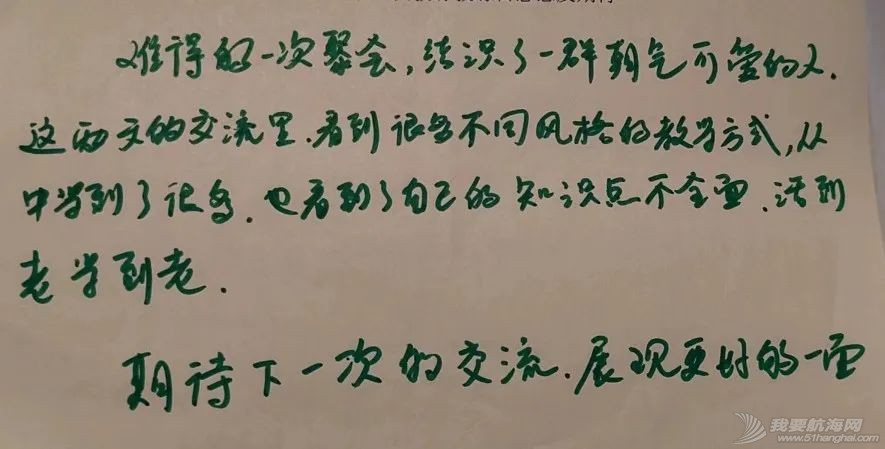 难得的一次聚会,结识了一群朝气可爱的人.
这两天的交流里.看到很多不同风格的教学方式,从
中学到了很多.也看到了自己的知识点不全面.活到
老学到老.
期待下一次的交流.展现更好的一面
我要航海网
www.51hanghai.com